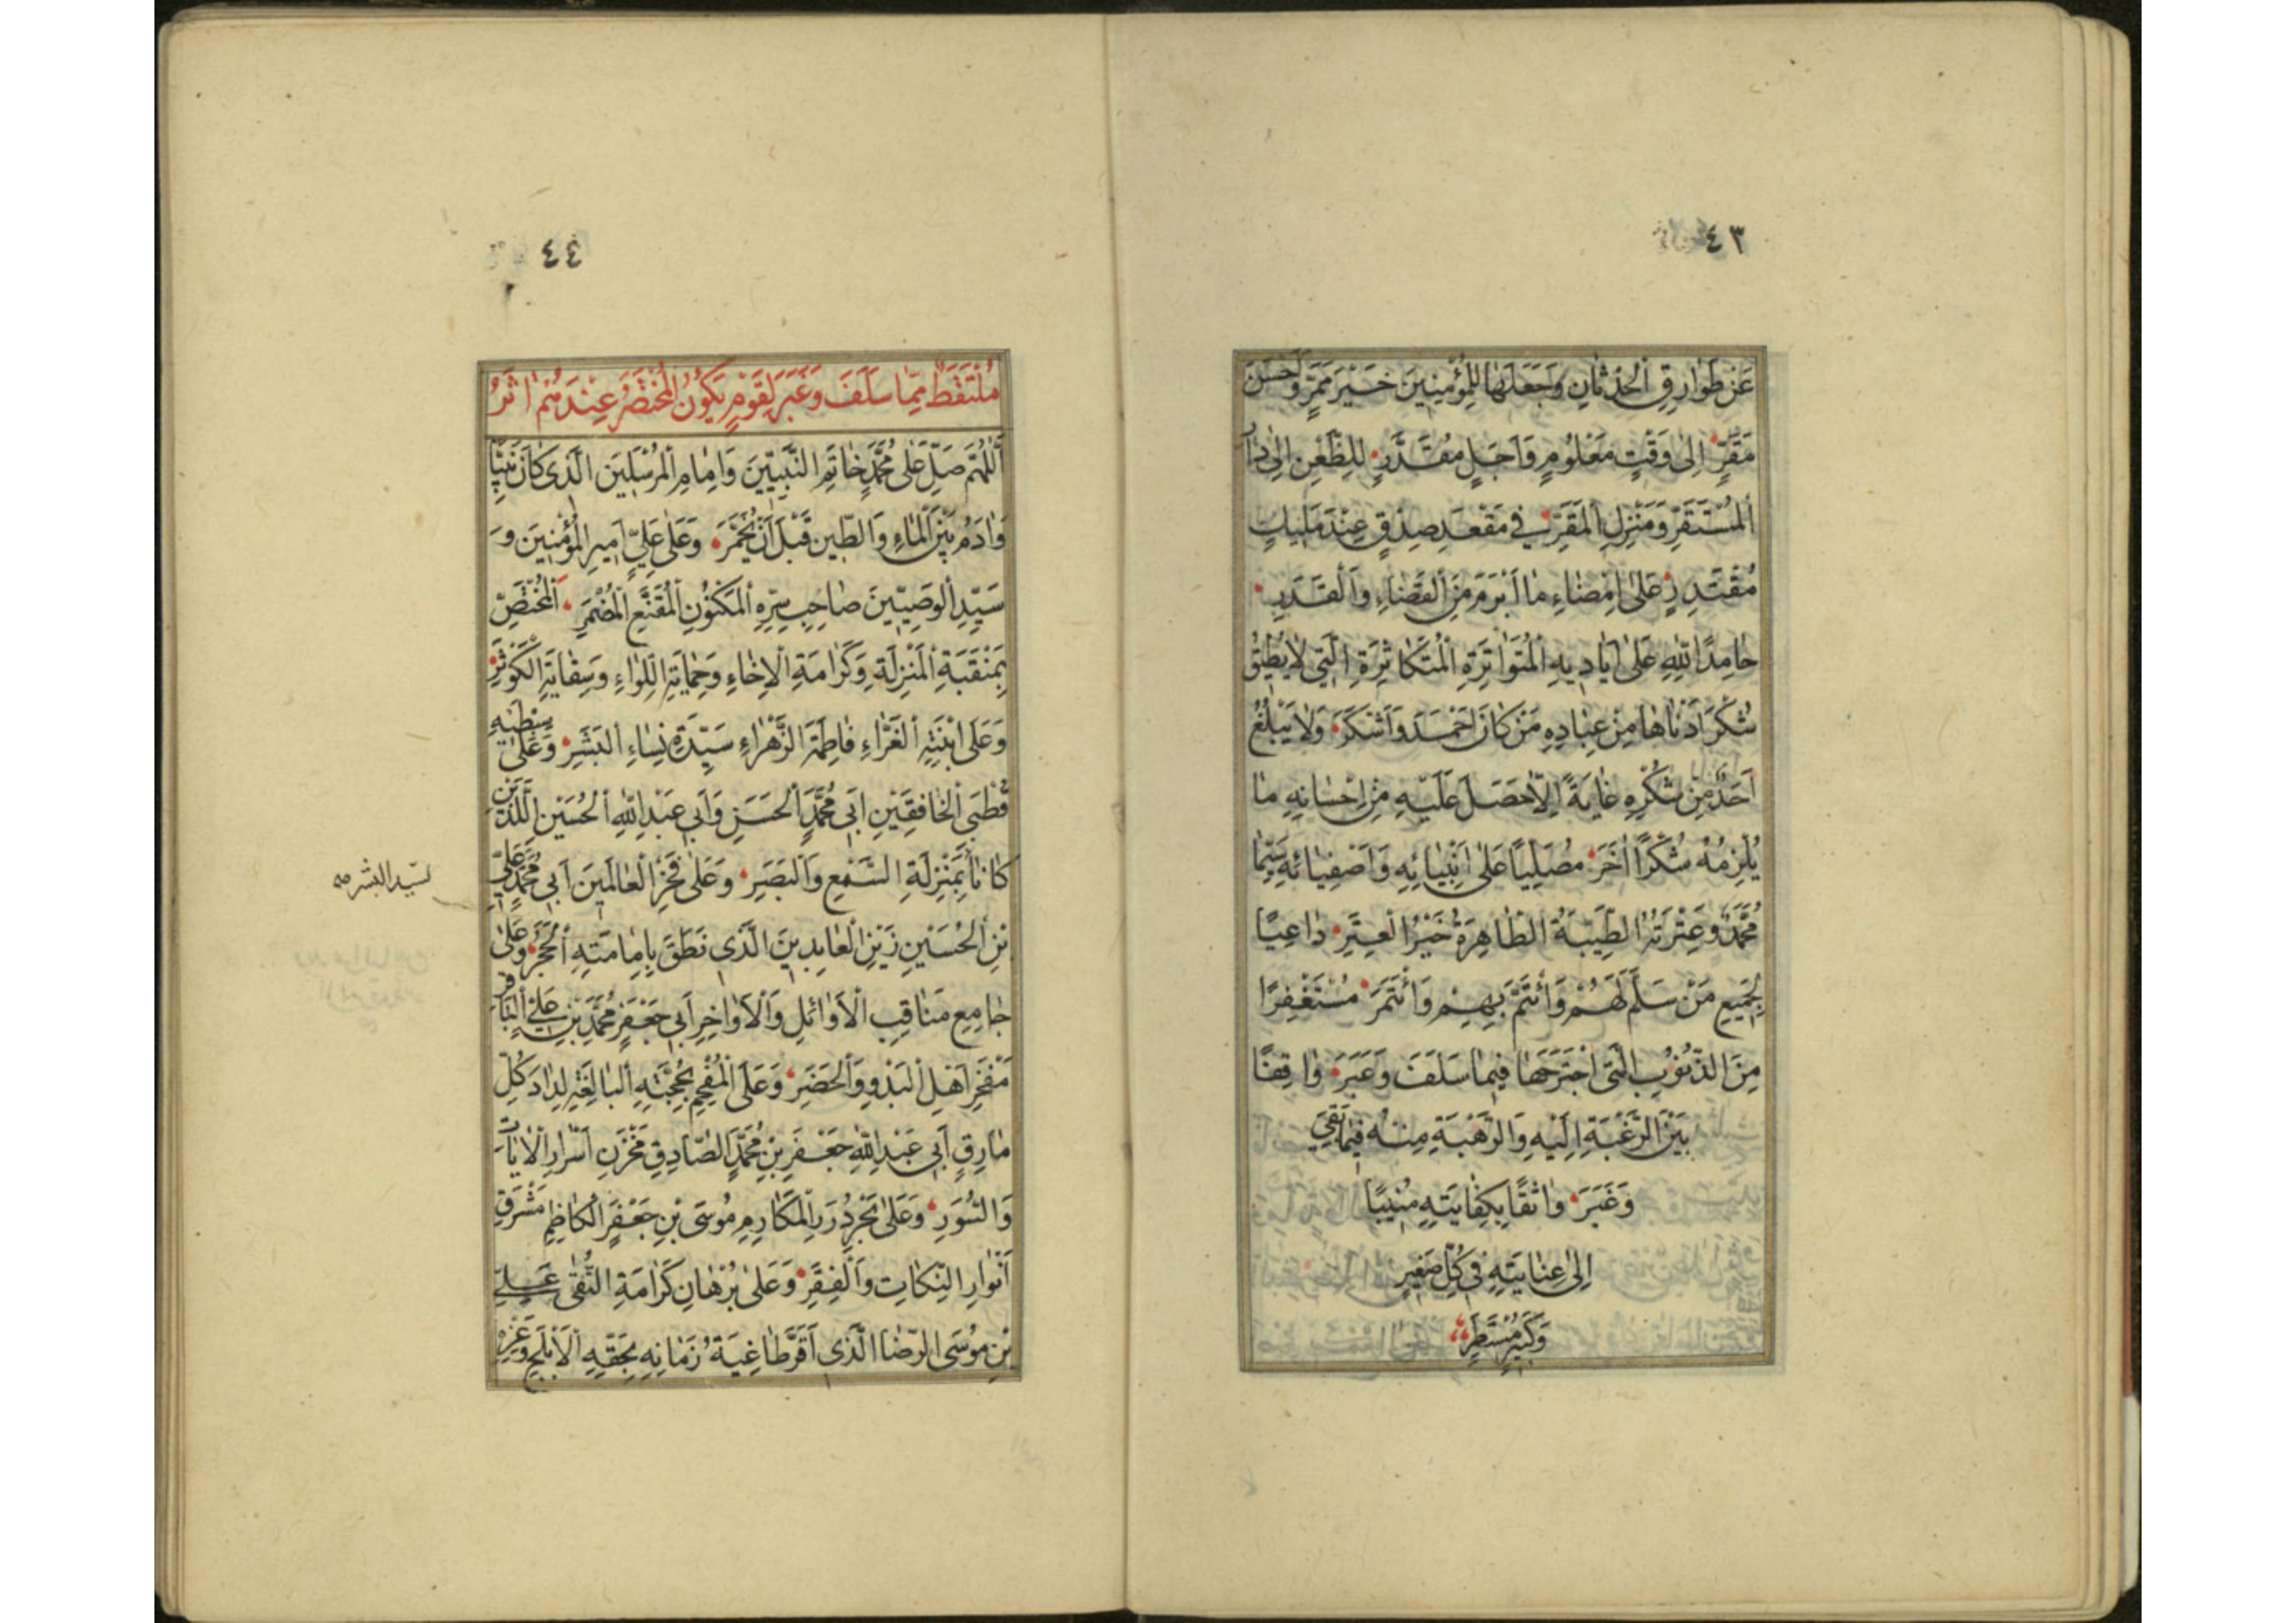 ٤٣
عَنْ طَوَارِقِ الْحَدَثَانِ وَجَعَلَهَا لِلْمُؤْمِنِينَ خَيْرَ مَمَرٍّ وَأَحْسَنَ
مَقَرٍّ إِلَى وَقْتٍ مَعْلُومٍ وَأَجَلٍ مُقَدَّرٍ لِلظَّعْنِ إِلَى دَارِ
الْمُسْتَقَرِّ وَمَنْزِلِ الْمَقَرِّ فِي مَقْعَدِ صِدْقٍ عِنْدَ مَلِيكٍ
مُقْتَدِرٍ عَلَى إِمْضَاءِ مَا أَبْرَمَ مِنَ الْقَضَاءِ وَالْقَدَرِ
حَامِدًا لِلَّهِ عَلَى أَيَادِيهِ الْمُتَوَاتِرَةِ الْمُتَكَاثِرَةِ الَّتِي لَا يُطِيقُ
شُكْرَ أَدْنَاهَا مِنْ عِبَادِهِ مَنْ كَانَ أَحْمَدَ وَأَشْكَرَ وَلَا يَبْلُغُ
أَحَدٌ مِنْ شُكْرِهِ غَايَةً إِلَّا حَصَلَ عَلَيْهِ مِنْ إِحْسَانِهِ مَا
يُلْزِمُهُ شُكْرًا أُخَرَ مُصَلِّيًا عَلَى أَنْبِيَائِهِ وَأَصْفِيَائِهِ سِيَّمَا
مُحَمَّدٌ وَعِتْرَتُهُ الطَّيِّبَةُ الطَّاهِرَةُ خَيْرُ الْعِتَرِ دَاعِيًا
لِجَمِيعِ مَنْ سَلَّمَ لَهُمْ وَائْتَمَّ بِهِمْ وَائْتَمَرَ مُسْتَغْفِرًا
مِنَ الذُّنُوبِ الَّتِي اجْتَرَحَهَا فِيمَا سَلَفَ وَعَبَرَ وَاقِفًا
بَيْنَ الرَّغْبَةِ إِلَيْهِ وَالرَّهْبَةِ مِنْهُ فِيمَا بَقِيَ
وَغَبَرَ وَاثِقًا بِكِفَايَتِهِ مُنِيبًا
إِلَى عِنَايَتِهِ فِي كُلِّ صَغِيرٍ
وَكَبِيرٍ مُسْتَطَرٍ
٤٤
مُلْتَقَطٌ مِمَّا سَلَفَ وَعَبَرَ لِقَوْمٍ يَكُونُ الْمُخْتَصَرُ عِنْدَهُمْ أَثَرُ
اَللّٰهُمَّ صَلِّ عَلَى مُحَمَّدٍ خَاتَمِ النَّبِيِّينَ وَإِمَامِ الْمُرْسَلِينَ الَّذِي كَانَ نَبِيًّا
وَآدَمُ بَيْنَ الْمَاءِ وَالطِّينِ قَبْلَ أَنْ يُخَمَّرَ وَعَلَى عَلِيٍّ أَمِيرِ الْمُؤْمِنِينَ وَ
سَيِّدِ الْوَصِيِّينَ صَاحِبِ سِرِّهِ الْمَكْنُونِ الْمُقَنَّعِ الْمُضْمَرِ الْمُخْتَصِّ
بِمَنْقَبَةِ الْمَنْزِلَةِ وَكَرَامَةِ الْإِخَاءِ وَحِمَايَةِ اللِّوَاءِ وَسِقَايَةِ الْكَوْثَرِ
وَعَلَى ابْنَتِهِ الْغَرَّاءِ فَاطِمَةَ الزَّهْرَاءِ سَيِّدَةِ نِسَاءِ الْبَشَرِ وَعَلَى سِبْطَيْهِ
قُطْبَيِ الْخَافِقَيْنِ أَبِي مُحَمَّدٍ الْحَسَنِ وَأَبِي عَبْدِ اللَّهِ الْحُسَيْنِ اللَّذَيْنِ
كَانَا بِمَنْزِلَةِ السَّمْعِ وَالْبَصَرِ وَعَلَى فَخْرِ الْعَالَمِينَ أَبِي مُحَمَّدٍ عَلِيِّ
لسيد البشر صه
بْنِ الْحُسَيْنِ زَيْنِ الْعَابِدِينَ الَّذِي نَطَقَ بِإِمَامَتِهِ الْحَجَرُ وَعَلَى
جَامِعِ مَنَاقِبِ الْأَوَائِلِ وَالْأَوَاخِرِ أَبِي جَعْفَرٍ مُحَمَّدِ بْنِ عَلِيٍّ الْبَاقِرِ
مَفْخَرِ أَهْلِ الْبَدْوِ وَالْحَضَرِ وَعَلَى الْمُفْحِمِ بِحُجَّتِهِ الْبَالِغَةِ لِدَادَ كُلِّ
مَارِقٍ أَبِي عَبْدِ اللَّهِ جَعْفَرِ بْنِ مُحَمَّدٍ الصَّادِقِ مَخْزَنِ أَسْرَارِ الْآيَاتِ
وَالسُّوَرِ وَعَلَى بَحْرِ دُرَرِ الْمَكَارِمِ مُوسَى بْنِ جَعْفَرٍ الْكَاظِمِ مَشْرِقِ
أَنْوَارِ النِّكَاتِ وَالْفِقَرِ وَعَلَى بُرْهَانِ كَرَامَةِ التُّقَى عَلِيِّ
بْنِ مُوسَى الرِّضَا الَّذِي أَقَرَّ طَاغِيَةُ زَمَانِهِ بِحَقِّهِ الْأَبْلَجِ وَعِزِّهِ